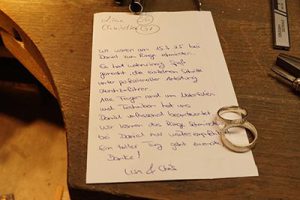 Lisa
Christian
Wir waren am 15.2.25 bei
Daniel zum Ringe schmieden.
Es hat wahnsinnig Spaß
gemacht, die einzelnen Schritte
unter professioneller Anleitung
durchzuführen.
Alle Fragen rund um Materialien
und Techniken hat uns
Daniel umfassend beantwortet.
Wir können das Ringe Schmieden
bei Daniel nur weiterempfehlen.
Ein toller Tag geht zuende.
Danke!
Lisa & Chris